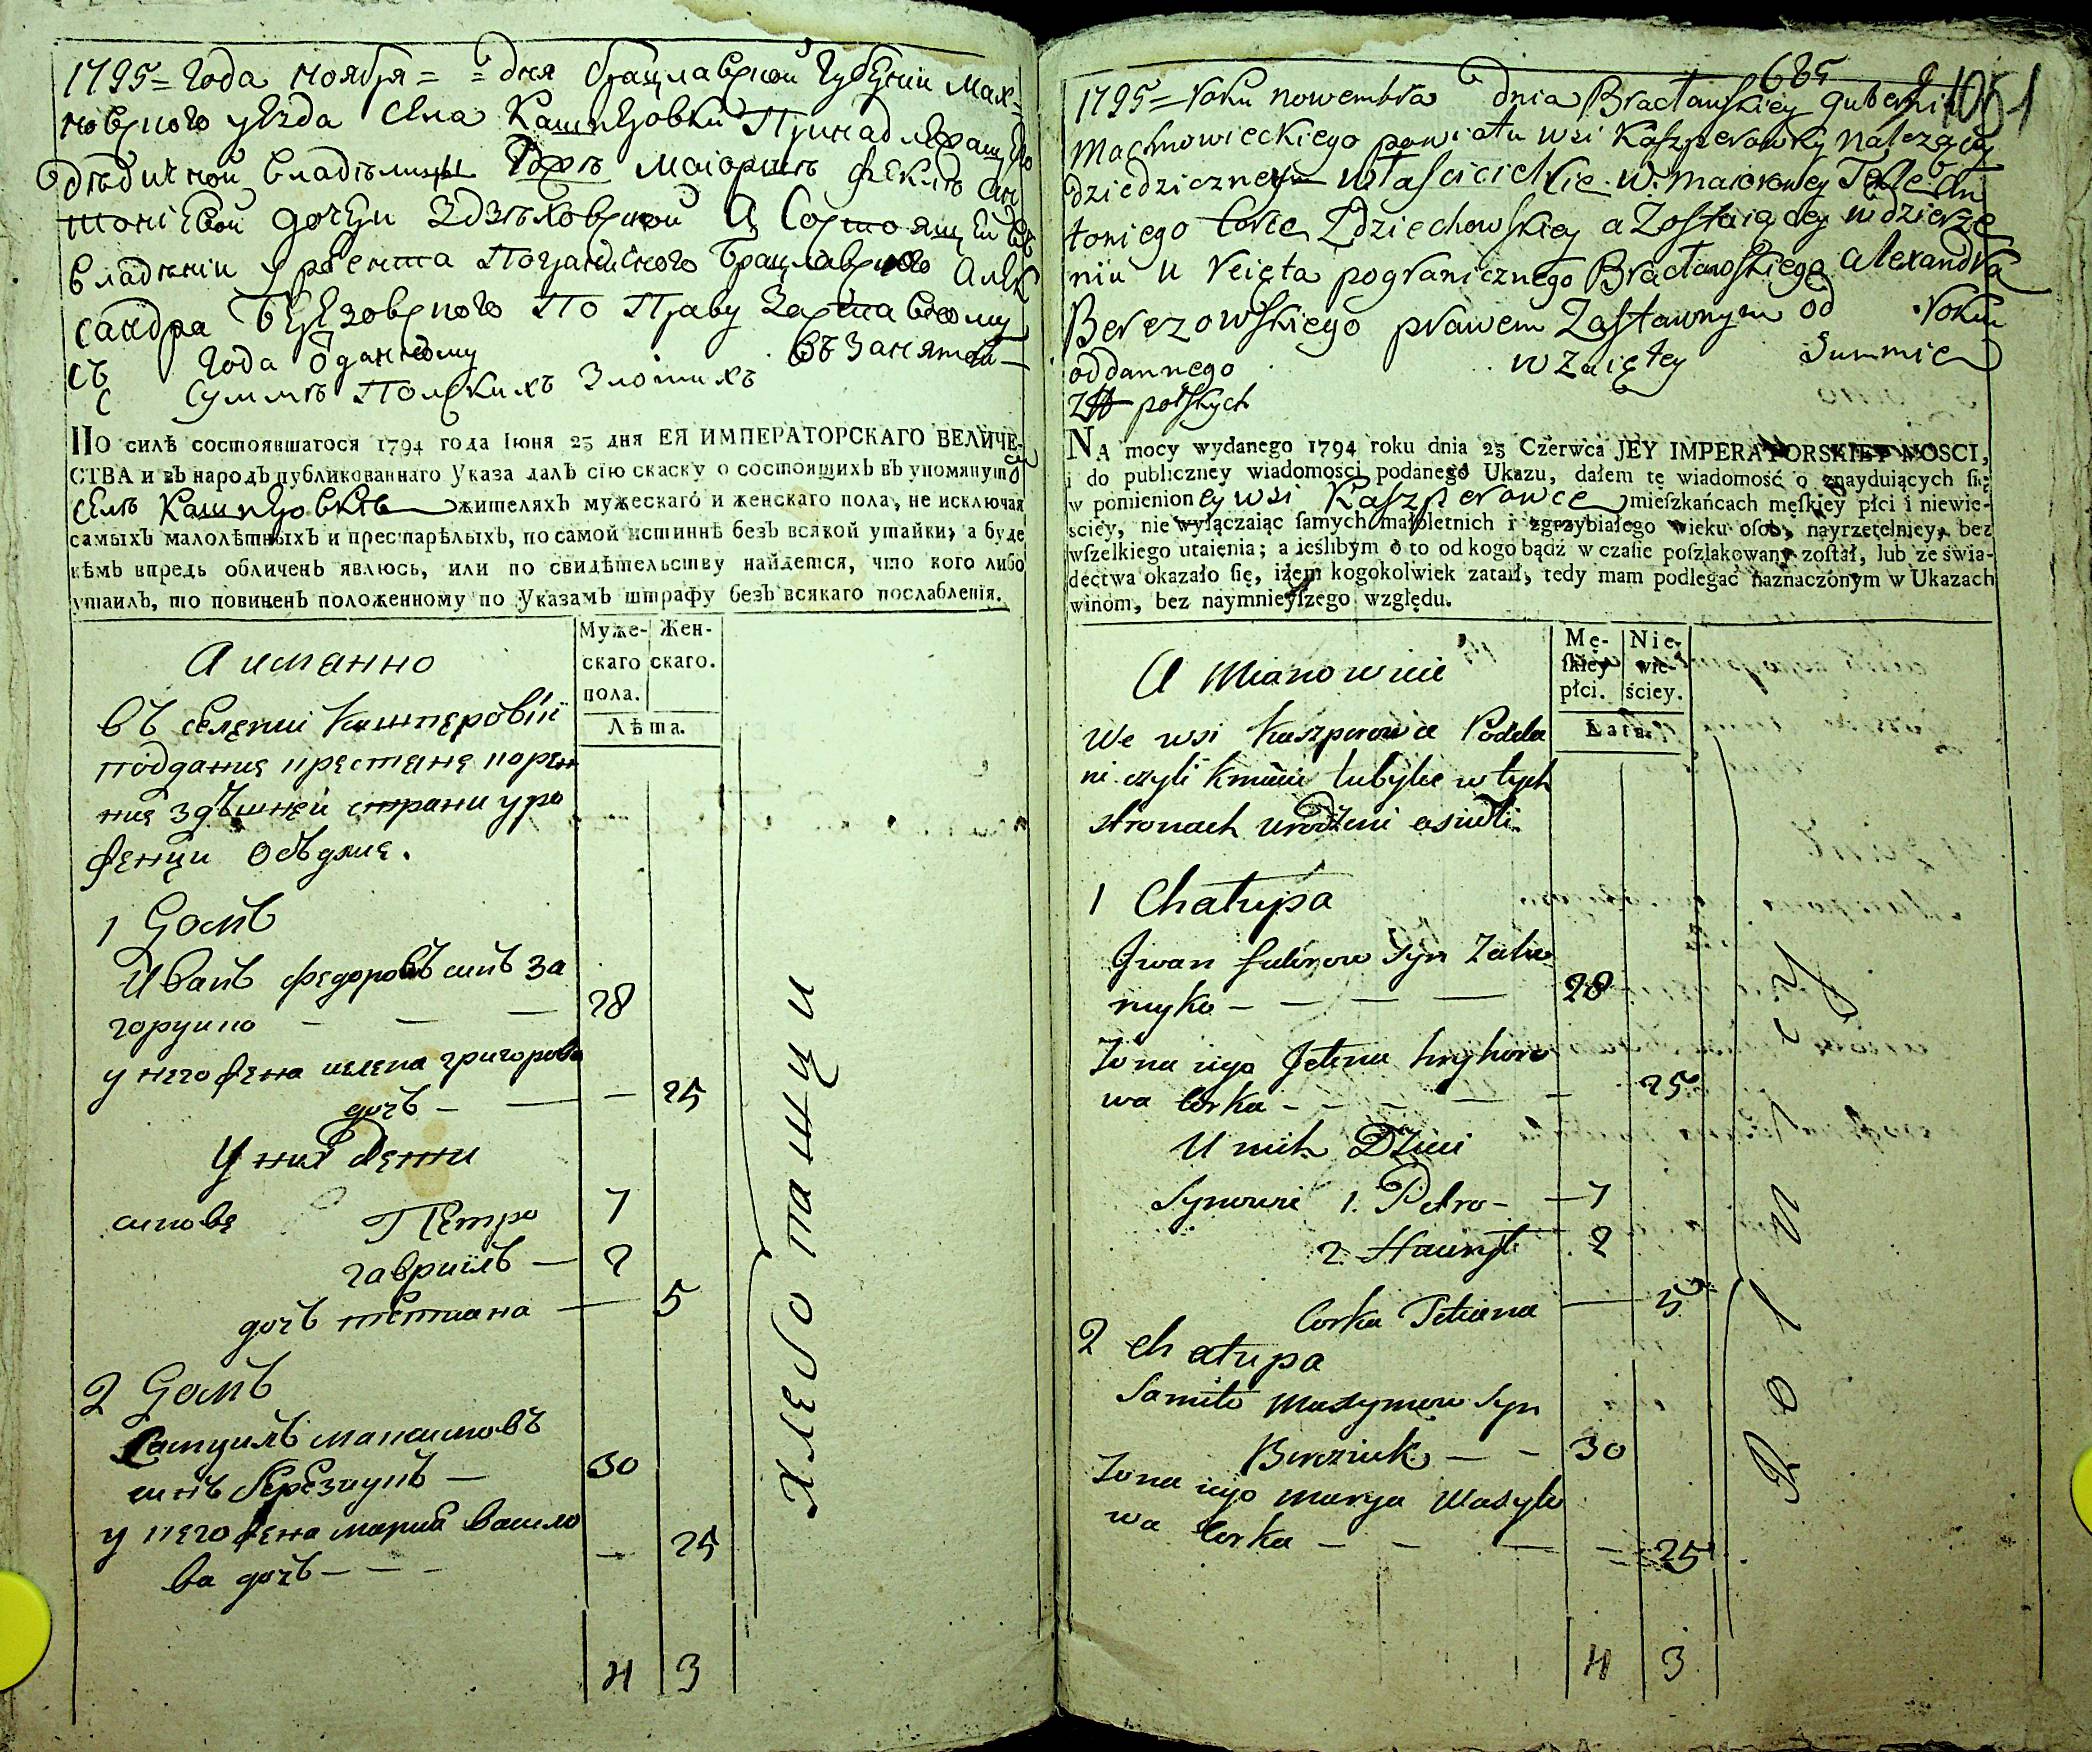 1795 = года ноября = = дня брацлавской губернии Мах=
новского уезда села Кашперовки Принадлежащего
дѣдичной владѣлице Госпѣ маіоршѣ Феклѣ Ан
тоніевой дочери Здзѣховской А Состоящей въ
владѣніи у реента Пограничного Брацлавского Алек
сандра Березовского По Праву Заставному
съ года отданному въ Занятой
суммѣ Полскихъ Злотихъ
По силѣ состоявшагося 1794 года Іюня 23 дня ЕЯ ИМПЕРАТОРСКАГО ВЕЛИЧЕ-
СТВА и въ народъ публикованнаго Указа далъ сію скаску о состоящихъ въ упомянутой
селѣ Кашперовкѣ жителяхъ мужескаго и женскаго пола, не исключая
самыхъ малолѣтныхъ и престарѣлыхъ, по самой истиннѣ безъ всякой утайки; а буде
кѣмъ впредь обличенъ явлюсь, или по свидѣтельству найдется, что кого либо
утаилъ, то повиненъ положенному по Указамъ штрафу безъ всякаго послабленія.
Муже- Жен-
скаго скаго.
пола.
Лѣта.
А иманно
въ селении Кашперовки
поддание крестяне корен
ние здѣшней страни уро
женци оседлие.
1 Домъ
Иванъ Федоровъ синъ За
горуико — — — 28
у него жена иелена григорова
дочъ — — — 25
У них Дети
синове Петро 7
гавриилъ — 2
дочъ тетиана — 5
2 Домъ
Самуилъ максимовъ
синъ березиукъ — 30
у него жена мария васило
ва дочъ — — — 25
4 3
хлебопашци
685
1051
1795 = roku nowembra dnia Bracławskiey gubernii
Machnowieckiego powiatu wsi Kaszperowky należącey
dziedziczney właścicielkie W. maiorowey Tekle An
toniego Córce Zdziechowskiey a Zostaiącey w dzierże
niu u reięta pogranicznego Bracławskiego Alexandra
Berezowskiego prawem Zastawnym od roku
oddannego w Zaiętey Summie
Zł polskych
NA mocy wydanego 1794 roku dnia 23 Czerwca JEY IMPERATORSKIEY MOSCI,
i do publiczney wiadomości podanego Ukazu, dałem tę wiadomość o znayduiących się
w pomienioney wsi Kaszperowce mieszkańcach męskiey płci i niewie-
ściey, nie wyłączaiąc samych małoletnich i zgrzybiałego wieku osob, nayrzetelniey, bez
wszelkiego utaienia; a ieślibym o to od kogo bądź w czasie poszlakowany został, lub ze świa-
dectwa okazało się, iżem kogokolwiek zataił, tedy mam podlegać naznaczonym w Ukazach
winom, bez naymnieyszego względu.
Mę- Nie-
skiey wie-
płci. ściey.
Lata.
A Mianowicie
We wsi Kaszperowce Podda
ni czyli kmiecie tubylce w tych
stronach urodzeni osiedli
1 Chałupa
Iwan fedorow Syn Zaho
ruyko — — — — 28
Żona iego Jelena hryhoro
wa Corka — — — — 25
U nich Dzieci
Synowie 1. Petro — — 7
2. Hawrył 2
Corka Tetiana — 5
2 chałupa
Samiło Maxymow Syn
Bereziuk — — 30
Żona iego Marya Wasylo
wa Corka — — — — 25
4 3
Rolnicy